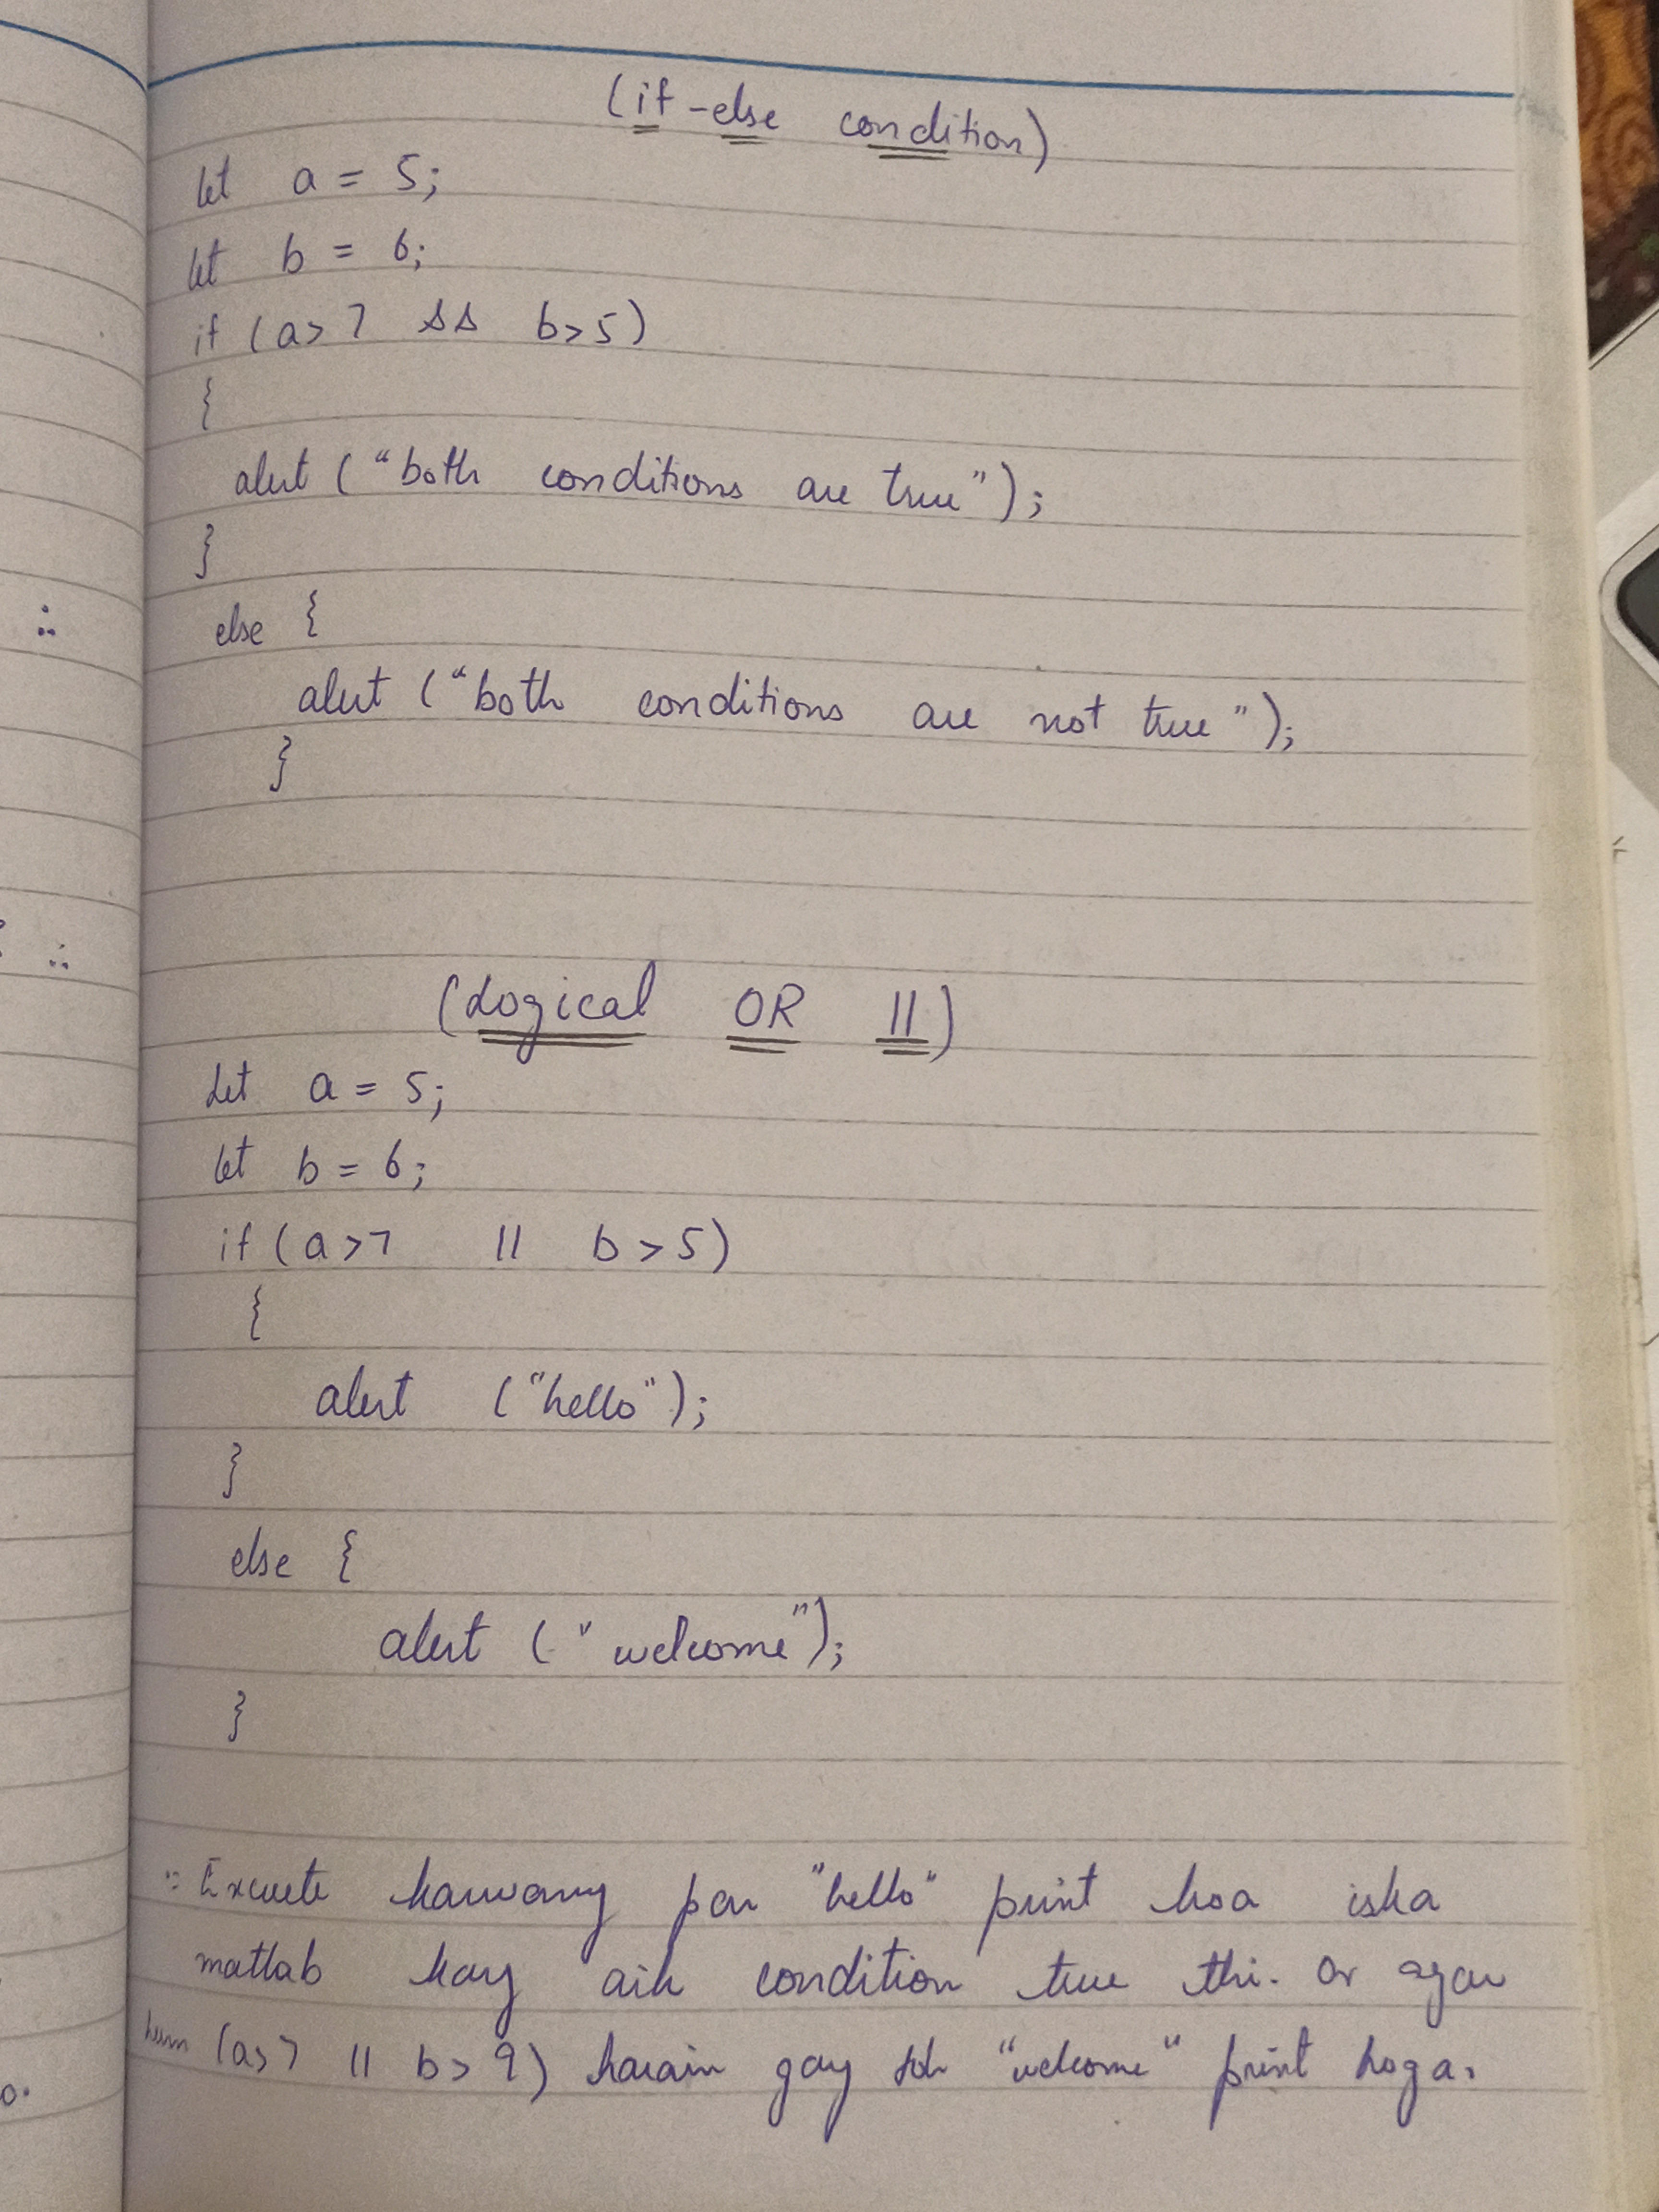 (if-else condition)
let a = 5;
let b = 6;
if (a>7 && b>5)
{
alert ("both conditions are true");
}
else {
alert ("both conditions are not true");
}
(Logical OR ||)
Let a = 5;
let b = 6;
if (a>7 || b>5)
{
alert ("hello");
}
else {
alert ("welcome");
}
∵ Execute karwany par "hello" print hoa iska
matlab kay aik condition true thi. or agar
hum (a>7 || b>9) karain gay toh "welcome" print hoga.